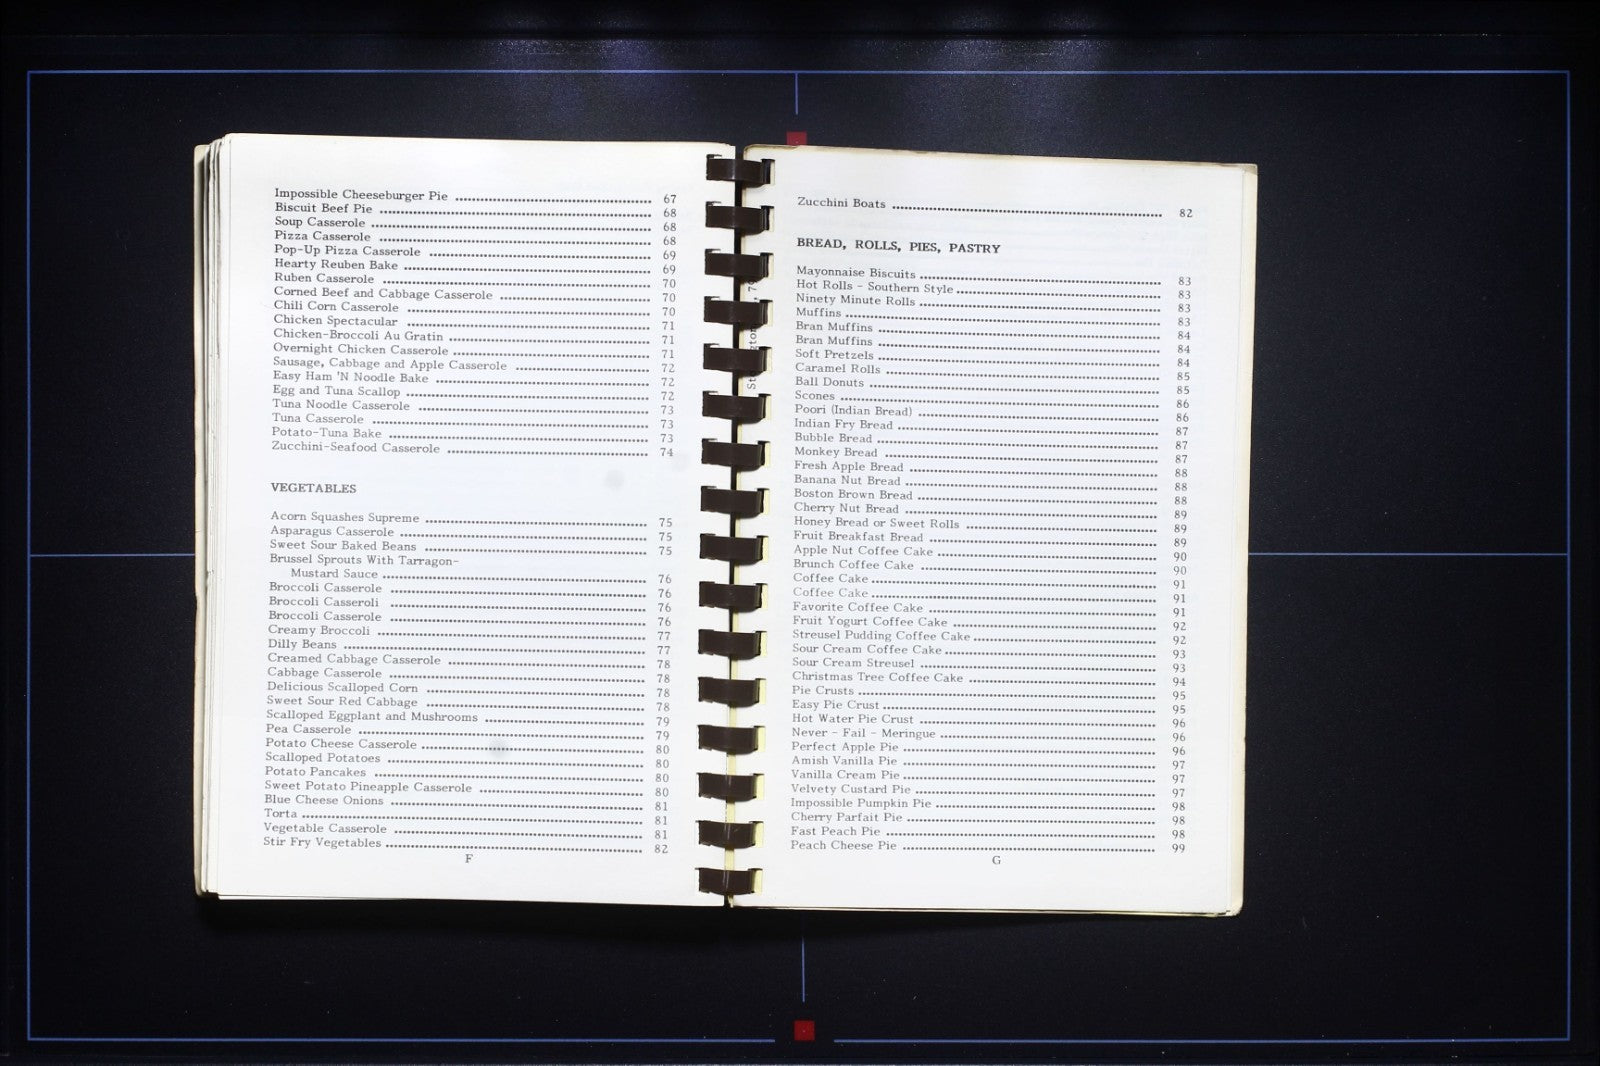 Impossible Cheeseburger Pie ........ 67
Biscuit Beef Pie ........ 68
Soup Casserole ........ 68
Pizza Casserole ........ 68
Pop-Up Pizza Casserole ........ 69
Hearty Reuben Bake ........ 69
Ruben Casserole ........ 70
Corned Beef and Cabbage Casserole ........ 70
Chili Corn Casserole ........ 70
Chicken Spectacular ........ 71
Chicken-Broccoli Au Gratin ........ 71
Overnight Chicken Casserole ........ 71
Sausage, Cabbage and Apple Casserole ........ 72
Easy Ham 'N Noodle Bake ........ 72
Egg and Tuna Scallop ........ 72
Tuna Noodle Casserole ........ 73
Tuna Casserole ........ 73
Potato-Tuna Bake ........ 73
Zucchini-Seafood Casserole ........ 74
VEGETABLES
Acorn Squashes Supreme ........ 75
Asparagus Casserole ........ 75
Sweet Sour Baked Beans ........ 75
Brussel Sprouts With Tarragon-
Mustard Sauce ........ 76
Broccoli Casserole ........ 76
Broccoli Casseroli ........ 76
Broccoli Casserole ........ 76
Creamy Broccoli ........ 77
Dilly Beans ........ 77
Creamed Cabbage Casserole ........ 78
Cabbage Casserole ........ 78
Delicious Scalloped Corn ........ 78
Sweet Sour Red Cabbage ........ 78
Scalloped Eggplant and Mushrooms ........ 79
Pea Casserole ........ 79
Potato Cheese Casserole ........ 80
Scalloped Potatoes ........ 80
Potato Pancakes ........ 80
Sweet Potato Pineapple Casserole ........ 80
Blue Cheese Onions ........ 81
Torta ........ 81
Vegetable Casserole ........ 81
Stir Fry Vegetables ........ 82
F
Zucchini Boats ........ 82
BREAD, ROLLS, PIES, PASTRY
Mayonnaise Biscuits ........ 83
Hot Rolls - Southern Style ........ 83
Ninety Minute Rolls ........ 83
Muffins ........ 83
Bran Muffins ........ 84
Bran Muffins ........ 84
Soft Pretzels ........ 84
Caramel Rolls ........ 85
Ball Donuts ........ 85
Scones ........ 86
Poori (Indian Bread) ........ 86
Indian Fry Bread ........ 87
Bubble Bread ........ 87
Monkey Bread ........ 87
Fresh Apple Bread ........ 88
Banana Nut Bread ........ 88
Boston Brown Bread ........ 88
Cherry Nut Bread ........ 89
Honey Bread or Sweet Rolls ........ 89
Fruit Breakfast Bread ........ 89
Apple Nut Coffee Cake ........ 90
Brunch Coffee Cake ........ 90
Coffee Cake ........ 91
Coffee Cake ........ 91
Favorite Coffee Cake ........ 91
Fruit Yogurt Coffee Cake ........ 92
Streusel Pudding Coffee Cake ........ 92
Sour Cream Coffee Cake ........ 93
Sour Cream Streusel ........ 93
Christmas Tree Coffee Cake ........ 94
Pie Crusts ........ 95
Easy Pie Crust ........ 95
Hot Water Pie Crust ........ 96
Never - Fail - Meringue ........ 96
Perfect Apple Pie ........ 96
Amish Vanilla Pie ........ 97
Vanilla Cream Pie ........ 97
Velvety Custard Pie ........ 97
Impossible Pumpkin Pie ........ 98
Cherry Parfait Pie ........ 98
Fast Peach Pie ........ 98
Peach Cheese Pie ........ 99
G